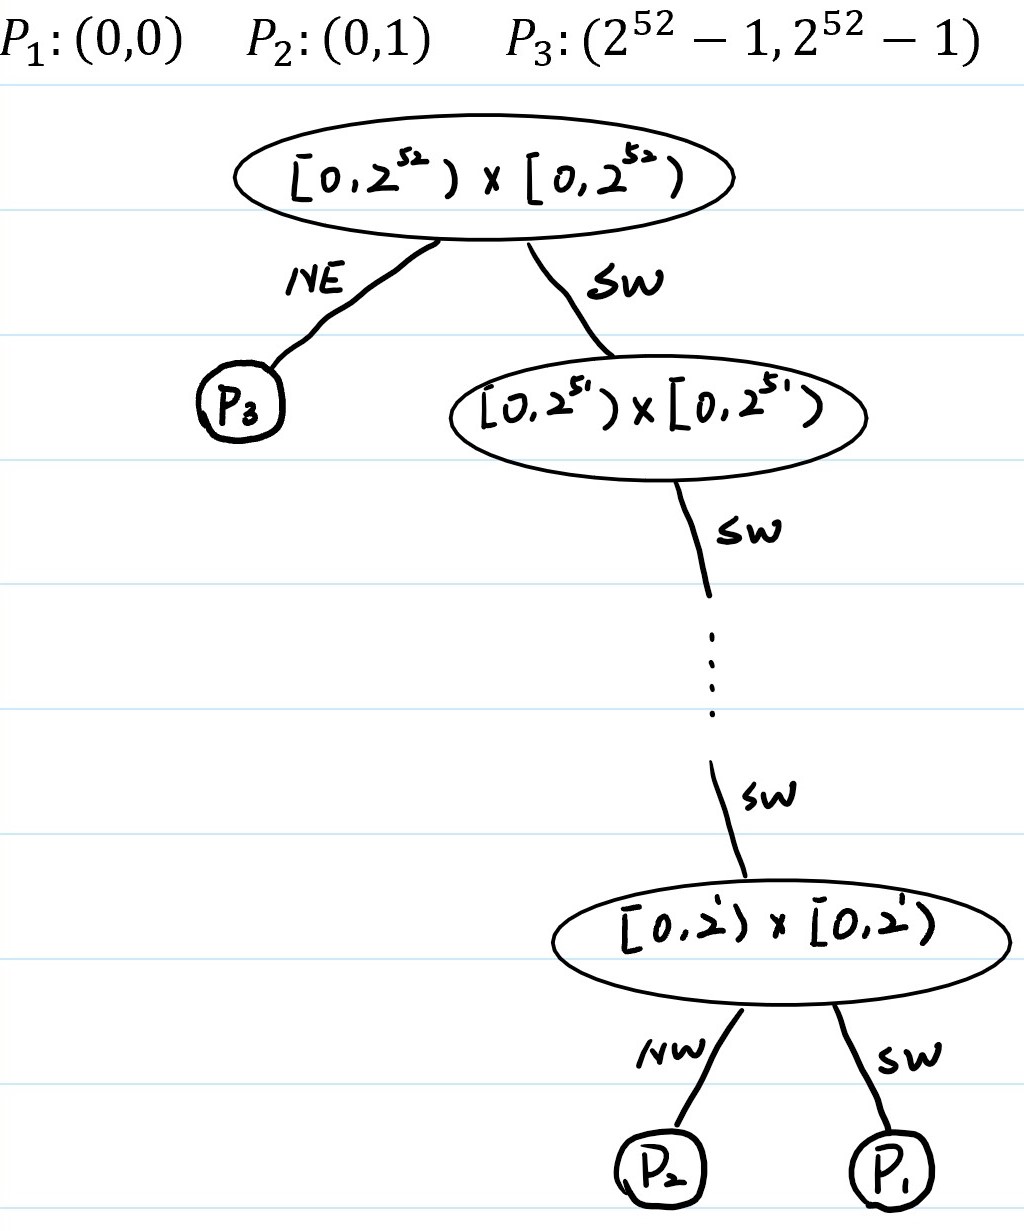 P₁: (0,0) P₂: (0,1) P₃: (2⁵² − 1, 2⁵² − 1)
[0,2⁵²) × [0,2⁵²)
NE SW
P₃ [0,2⁵¹) × [0,2⁵¹)
SW
⋮
SW
[0,2¹) × [0,2¹)
NW SW
P₂ P₁